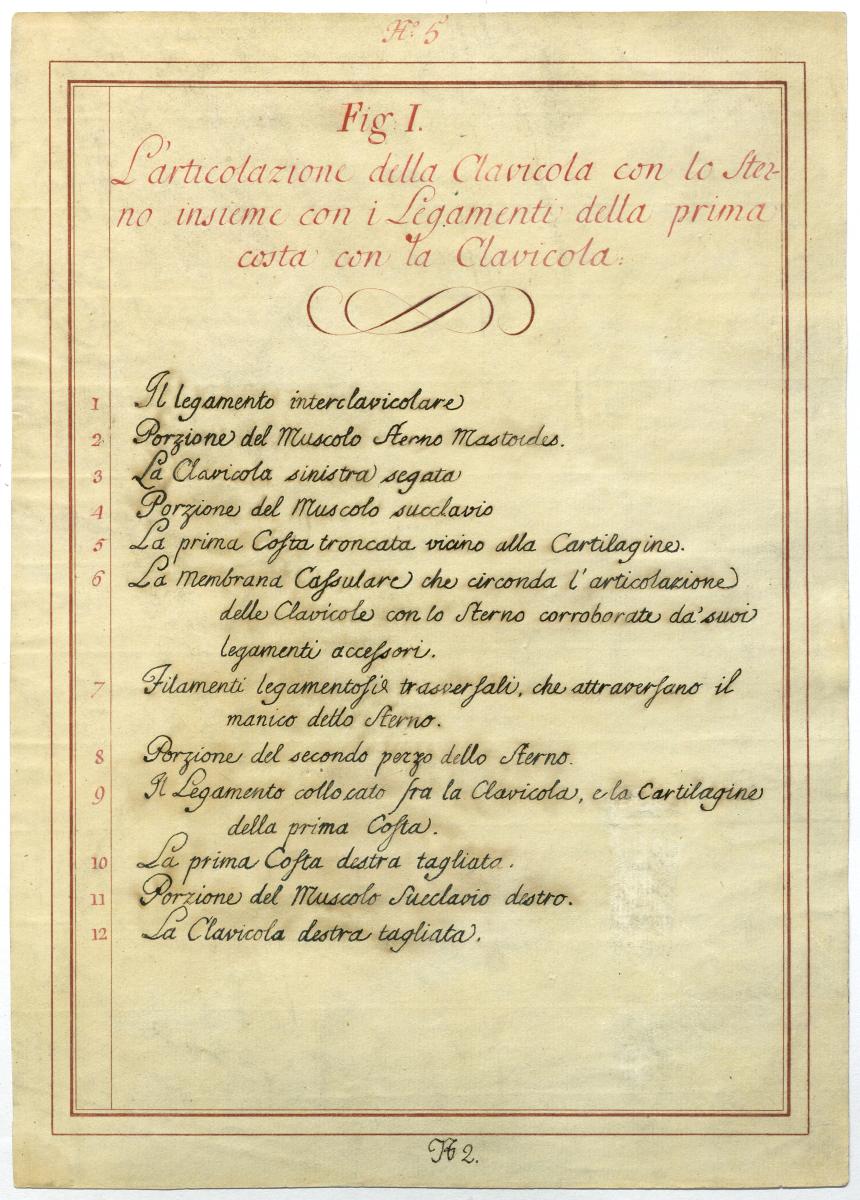 N.º 5
Fig I.
L'articolazione della Clavicola con lo Ster-
no insieme con i Legamenti della prima
costa con la Clavicola:
1 Il legamento interclavicolare
2 Porzione del Muscolo Sterno Mastoides.
3 La Clavicola sinistra segata
4 Porzione del Muscolo succlavio
5 La prima Coſta troncata vicino alla Cartilagine.
6 La Membrana Caſsulare che circonda l'articolazione
delle Clavicole con lo Sterno corroborate da' suoi
legamenti acceſsori.
7 Filamenti legamentoſi trasverſali, che attraverſano il
manico dello Sterno.
8 Porzione del secondo pezzo dello Sterno.
9 Il Legamento collocato fra la Clavicola, e la Cartilagine
della prima Coſta.
10 La prima Coſta destra tagliata.
11 Porzione del Muscolo Succlavio destro.
12 La Clavicola destra tagliata.
N 2.